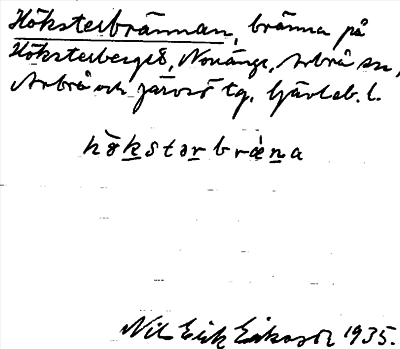 Höksterbrännan, bränna på
Höksterberget, Norränge, Arbrå sn,
Arbrå och Järvsö tg. Gävleb. l.
hökstorbræna
Nils Erik Eriksson 1935.